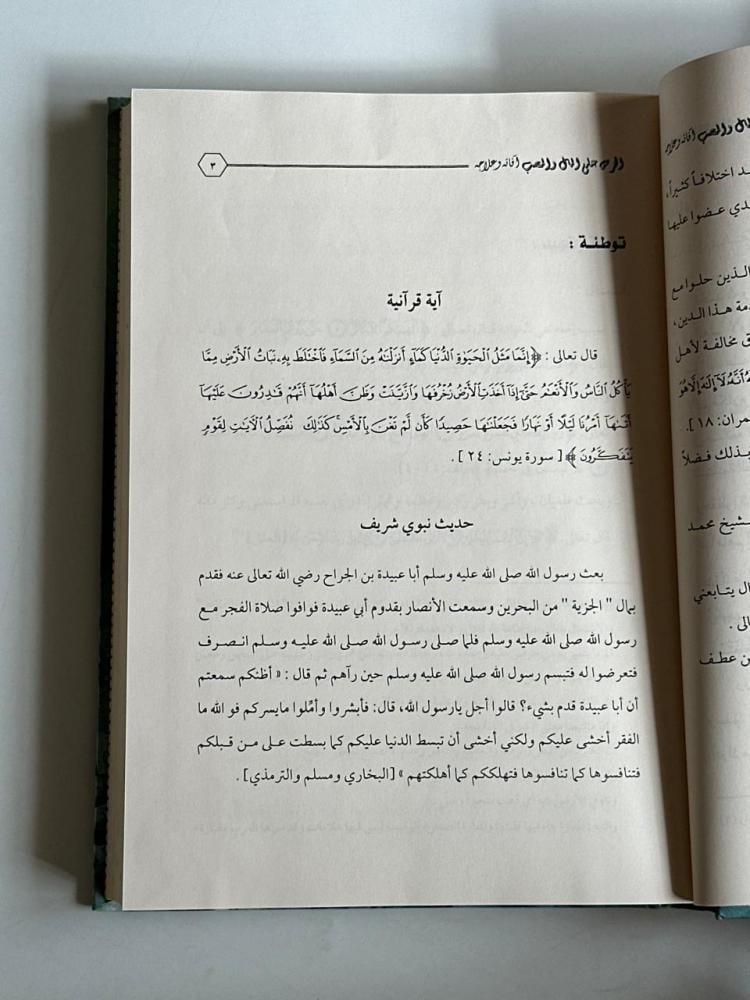 الحرص على المال والمنصب آفاته وعلاجه
٣
توطئة :
آية قرآنية
قال تعالى : ﴿إِنَّمَا مَثَلُ الْحَيَوٰةِ الدُّنْيَا كَمَآءٍ أَنزَلْنَٰهُ مِنَ السَّمَآءِ فَاخْتَلَطَ بِهِۦ نَبَاتُ الْأَرْضِ مِمَّا
يَأْكُلُ النَّاسُ وَالْأَنْعَٰمُ حَتَّىٰٓ إِذَآ أَخَذَتِ الْأَرْضُ زُخْرُفَهَا وَازَّيَّنَتْ وَظَنَّ أَهْلُهَآ أَنَّهُمْ قَٰدِرُونَ عَلَيْهَآ
أَتَىٰهَآ أَمْرُنَا لَيْلًا أَوْ نَهَارًا فَجَعَلْنَٰهَا حَصِيدًا كَأَن لَّمْ تَغْنَ بِالْأَمْسِ ۚ كَذَٰلِكَ نُفَصِّلُ الْآيَٰتِ لِقَوْمٍ
يَتَفَكَّرُونَ﴾ [ سورة يونس: ٢٤ ] .
حديث نبوي شريف
بعث رسول الله صلى الله عليه وسلم أبا عبيدة بن الجراح رضي الله تعالى عنه فقدم
بمال " الجزية " من البحرين وسمعت الأنصار بقدوم أبي عبيدة فوافوا صلاة الفجر مع
رسول الله صلى الله عليه وسلم فلما صلى رسول الله صلى الله عليه وسلم انصرف
فتعرضوا له فتبسم رسول الله صلى الله عليه وسلم حين رآهم ثم قال : « أظنكم سمعتم
أن أبا عبيدة قدم بشيء؟ قالوا أجل يارسول الله، قال: فأبشروا وأمِّلوا مايسركم فو الله ما
الفقر أخشى عليكم ولكني أخشى أن تبسط الدنيا عليكم كما بسطت على من قبلكم
فتنافسوها كما تنافسوها فتهلككم كما أهلكتهم » [البخاري ومسلم والترمذي] .
آفاته وعلاجه
اختلافاً كثيراً،
عضوا عليها
الذين حلوا مع
هذا الدين،
مخالفة لأهل
أَنَّهُ لَآ إِلَٰهَ إِلَّا هُوَ
١٨ ].
بذلك فضلاً
محمد
يتابعني
عطف